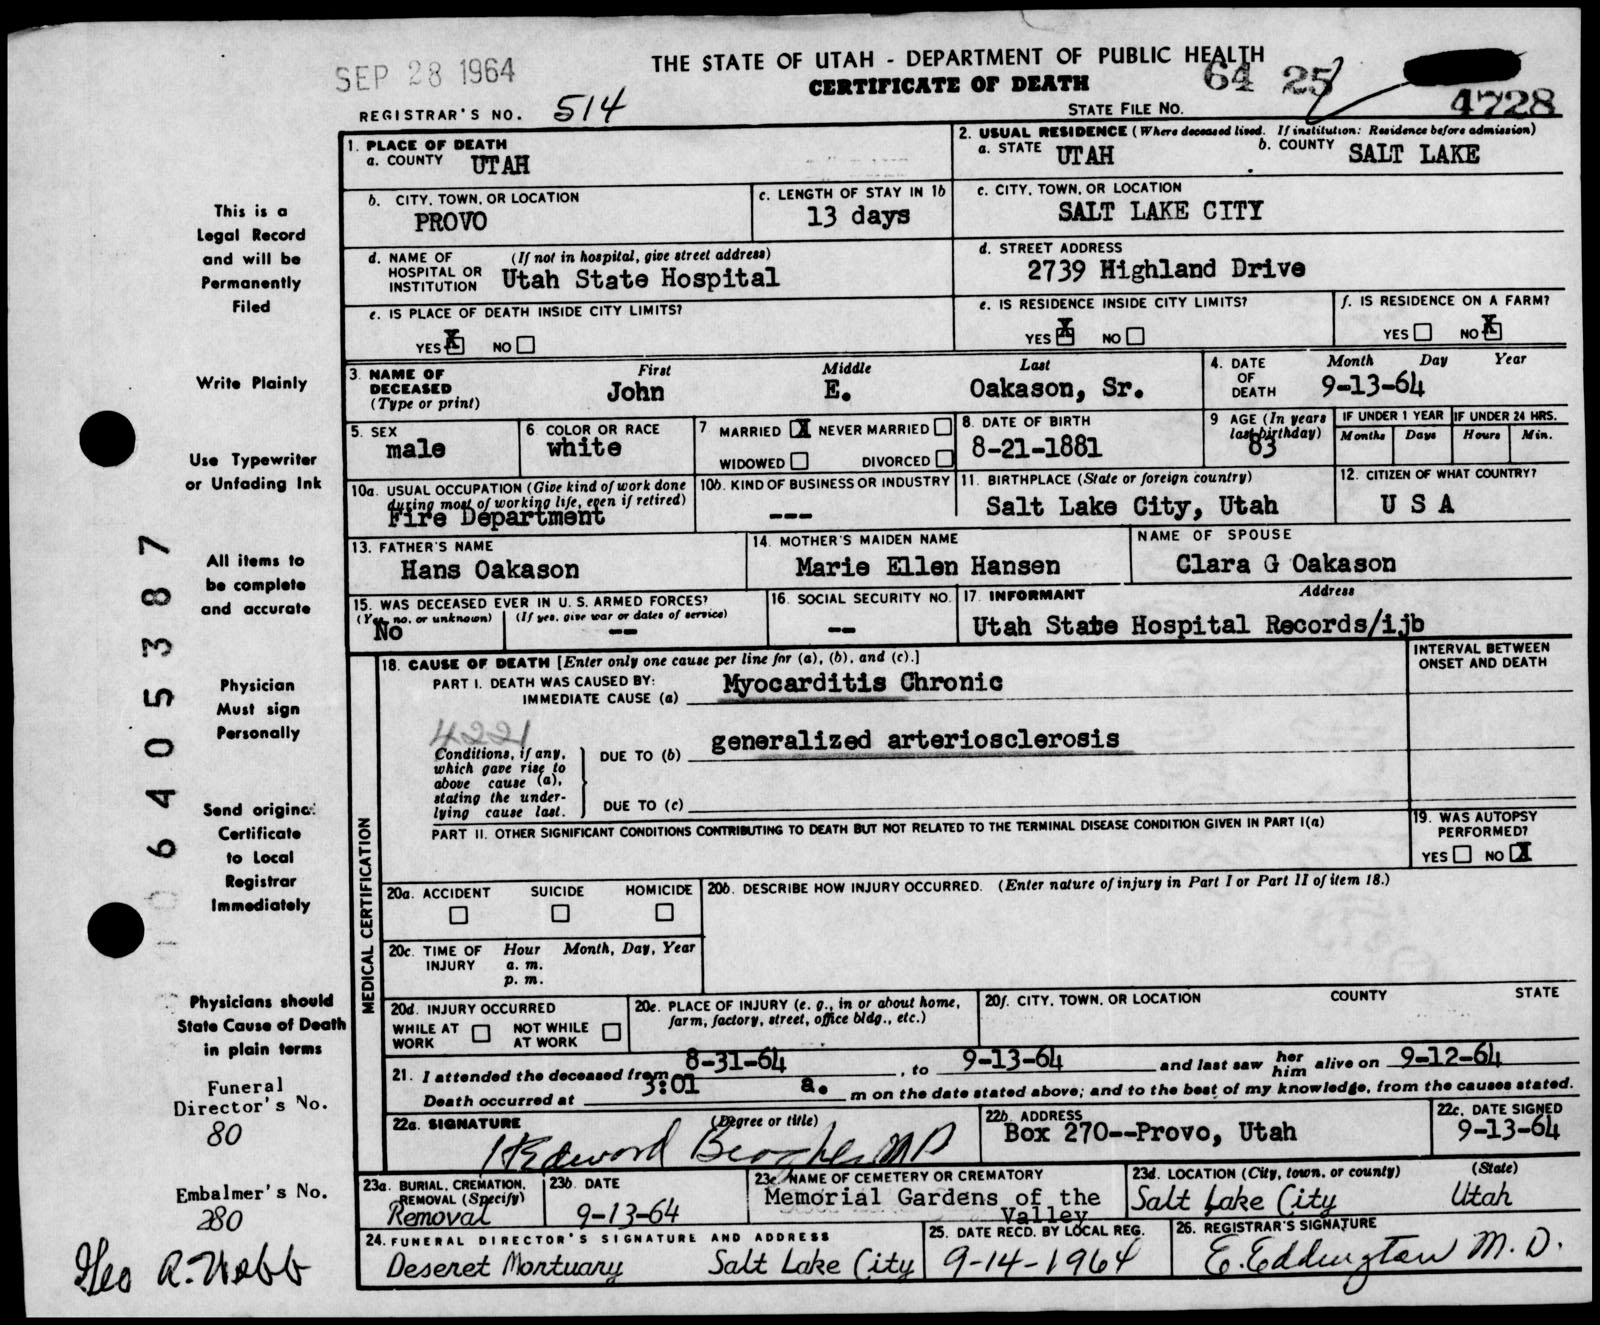 THE STATE OF UTAH - DEPARTMENT OF PUBLIC HEALTH
SEP 28 1964
CERTIFICATE OF DEATH
64 25
REGISTRAR'S NO. 514
STATE FILE NO. 4728
1. PLACE OF DEATH
a. COUNTY UTAH
2. USUAL RESIDENCE (Where deceased lived. If institution: Residence before admission)
a. STATE UTAH b. COUNTY SALT LAKE
b. CITY, TOWN, OR LOCATION
PROVO
c. LENGTH OF STAY IN 1b
13 days
c. CITY, TOWN, OR LOCATION
SALT LAKE CITY
d. NAME OF HOSPITAL OR INSTITUTION (If not in hospital, give street address)
Utah State Hospital
d. STREET ADDRESS
2739 Highland Drive
e. IS PLACE OF DEATH INSIDE CITY LIMITS?
YES X NO
e. IS RESIDENCE INSIDE CITY LIMITS?
YES X NO
f. IS RESIDENCE ON A FARM?
YES NO X
3. NAME OF DECEASED (Type or print)
First Middle Last
John E. Oakason, Sr.
4. DATE OF DEATH
Month Day Year
9-13-64
5. SEX
male
6. COLOR OR RACE
white
7. MARRIED X NEVER MARRIED
WIDOWED DIVORCED
8. DATE OF BIRTH
8-21-1881
9 AGE (In years last birthday)
83
IF UNDER 1 YEAR
Months Days
IF UNDER 24 HRS.
Hours Min.
10a. USUAL OCCUPATION (Give kind of work done during most of working life, even if retired)
Fire Department
10b. KIND OF BUSINESS OR INDUSTRY
---
11. BIRTHPLACE (State or foreign country)
Salt Lake City, Utah
12. CITIZEN OF WHAT COUNTRY?
U S A
13. FATHER'S NAME
Hans Oakason
14. MOTHER'S MAIDEN NAME
Marie Ellen Hansen
NAME OF SPOUSE
Clara G Oakason
15. WAS DECEASED EVER IN U. S. ARMED FORCES?
(Yes, no, or unknown) (If yes, give war or dates of service)
No --
16. SOCIAL SECURITY NO.
--
17. INFORMANT Address
Utah State Hospital Records/ijb
MEDICAL CERTIFICATION
18. CAUSE OF DEATH [Enter only one cause per line for (a), (b), and (c).]
INTERVAL BETWEEN ONSET AND DEATH
PART I. DEATH WAS CAUSED BY:
IMMEDIATE CAUSE (a) Myocarditis Chronic
4221
Conditions, if any, which gave rise to above cause (a), stating the underlying cause last.
DUE TO (b) generalized arteriosclerosis
DUE TO (c)
PART II. OTHER SIGNIFICANT CONDITIONS CONTRIBUTING TO DEATH BUT NOT RELATED TO THE TERMINAL DISEASE CONDITION GIVEN IN PART I(a)
19. WAS AUTOPSY PERFORMED?
YES NO X
20a. ACCIDENT SUICIDE HOMICIDE
20b. DESCRIBE HOW INJURY OCCURRED. (Enter nature of injury in Part I or Part II of item 18.)
20c. TIME OF INJURY
Hour Month, Day, Year
a. m.
p. m.
20d. INJURY OCCURRED
WHILE AT WORK NOT WHILE AT WORK
20e. PLACE OF INJURY (e. g., in or about home, farm, factory, street, office bldg., etc.)
20f. CITY, TOWN, OR LOCATION COUNTY STATE
21. I attended the deceased from 8-31-64, to 9-13-64 and last saw her him alive on 9-12-64
Death occurred at 3:01 a. m on the date stated above; and to the best of my knowledge, from the causes stated.
22a. SIGNATURE (Degree or title)
Edward MD
22b. ADDRESS
Box 270--Provo, Utah
22c. DATE SIGNED
9-13-64
23a. BURIAL, CREMATION, REMOVAL (Specify)
Removal
23b. DATE
9-13-64
23c. NAME OF CEMETERY OR CREMATORY
Memorial Gardens of the Valley
23d. LOCATION (City, town, or county) (State)
Salt Lake City Utah
24. FUNERAL DIRECTOR'S SIGNATURE AND ADDRESS
Deseret Mortuary Salt Lake City
25. DATE RECD. BY LOCAL REG.
9-14-1964
26. REGISTRAR'S SIGNATURE
E. Eddington M. D.
This is a
Legal Record
and will be
Permanently
Filed
Write Plainly
Use Typewriter
or Unfading Ink
All items to
be complete
and accurate
Physician
Must sign
Personally
Send original
Certificate
to Local
Registrar
Immediately
Physicians should
State Cause of Death
in plain terms
Funeral
Director's No.
80
Embalmer's No.
280
Geo R. Webb
640 5387